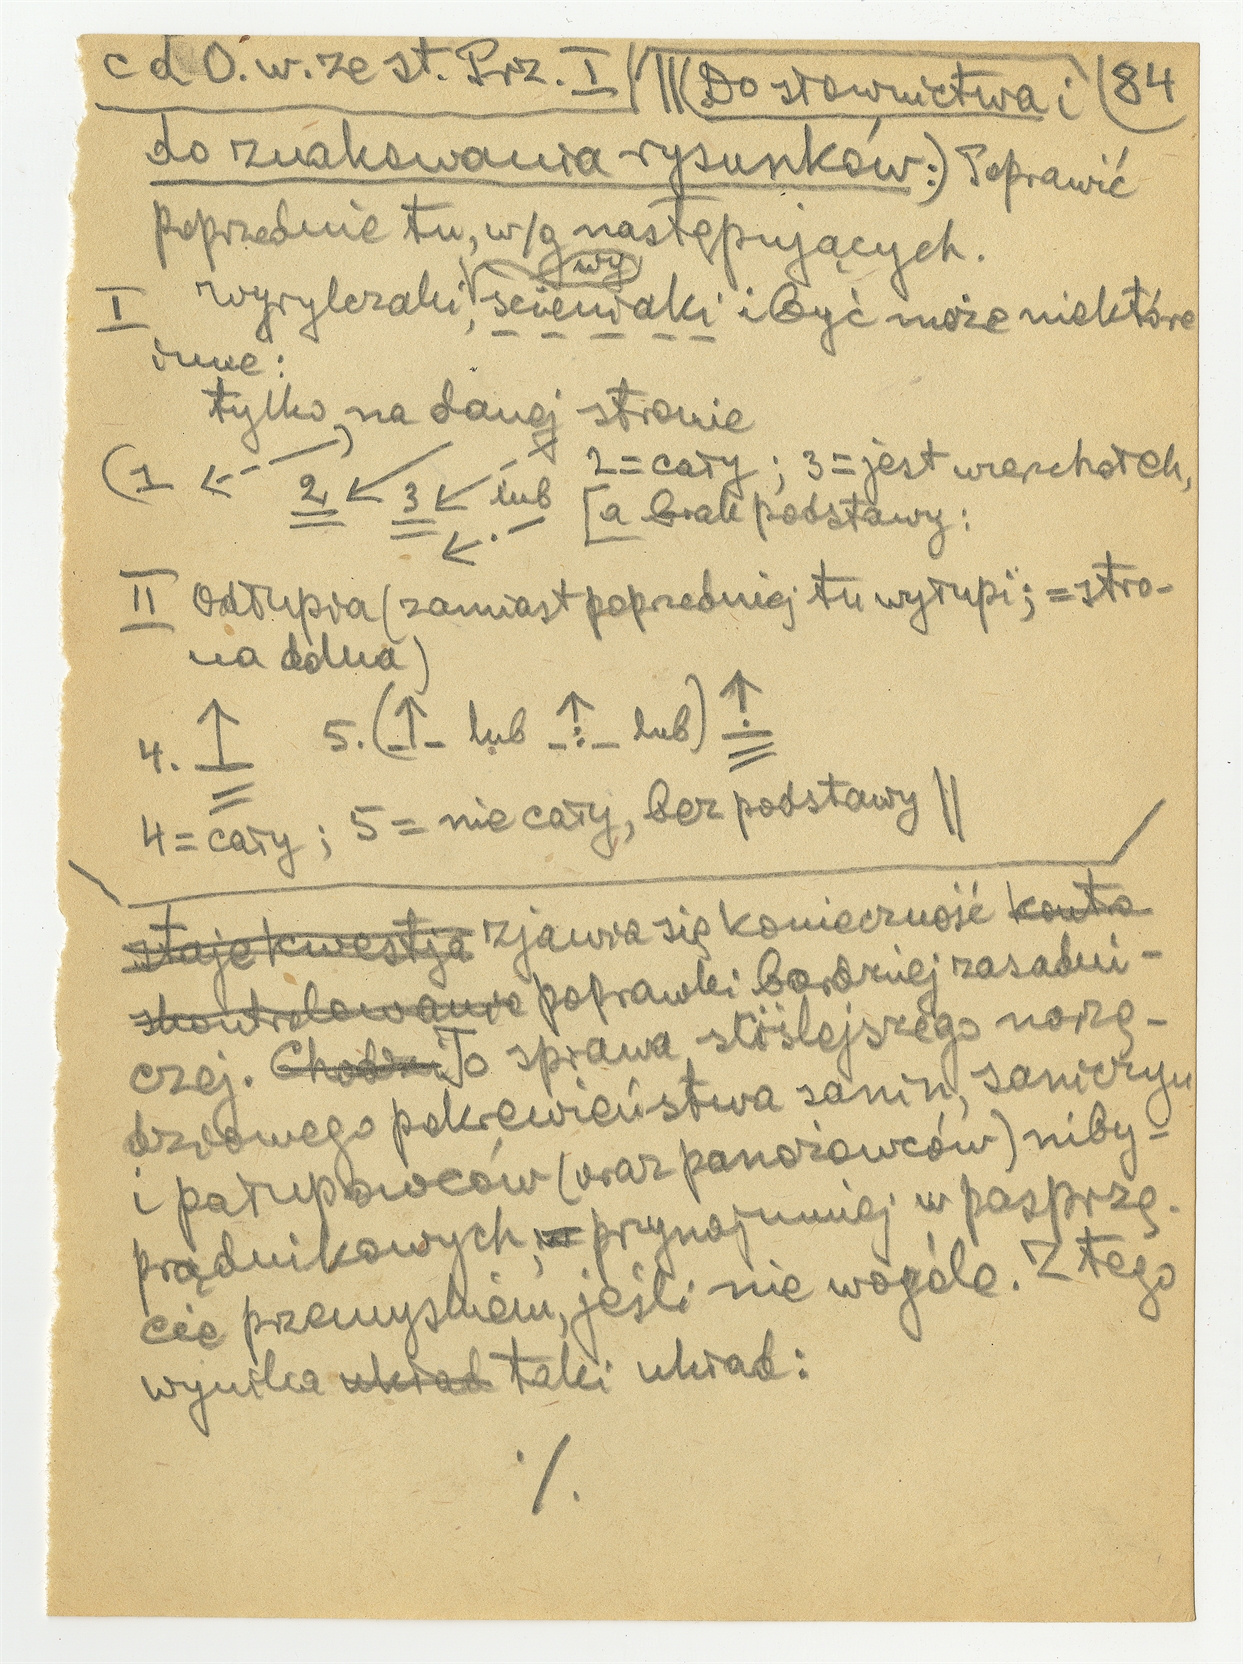 c d O. w. ze st. Prz. I ||| (Do słownictwa i (84
do znakowania rysunków:) Poprawić
poprzednie tu, w/g następujących.
wy
I wyrylczaki, ścieniaki i być może niektóre
inne:
tylko na danej stronie
(1 ← 2 ← 3 ← lub 2 = cały ; 3 = jest wierzchołek,
← [a brak podstawy:
II Odłupia (zamiast poprzedniej tu wyłupi; = stro-
na dolna)
4. ↑ 5. (↑ lub ↑ lub) ↑
4 = cały ; 5 = nie cały, bez podstawy ||
staje kwestja zjawia się konieczność konto
skontrolowania poprawki bardziej zasadni-
czej. Chodzi To sprawa, ściślejszego narzę-
dziowego pokrewieństwa sanin, saniczyn
i pałupowców (oraz panożowców) niby-
prądnikowych, = przynajmniej w pasprzę.
cie przemysłniem, jeśli nie wogóle. Z tego
wynika układ taki układ:
./.